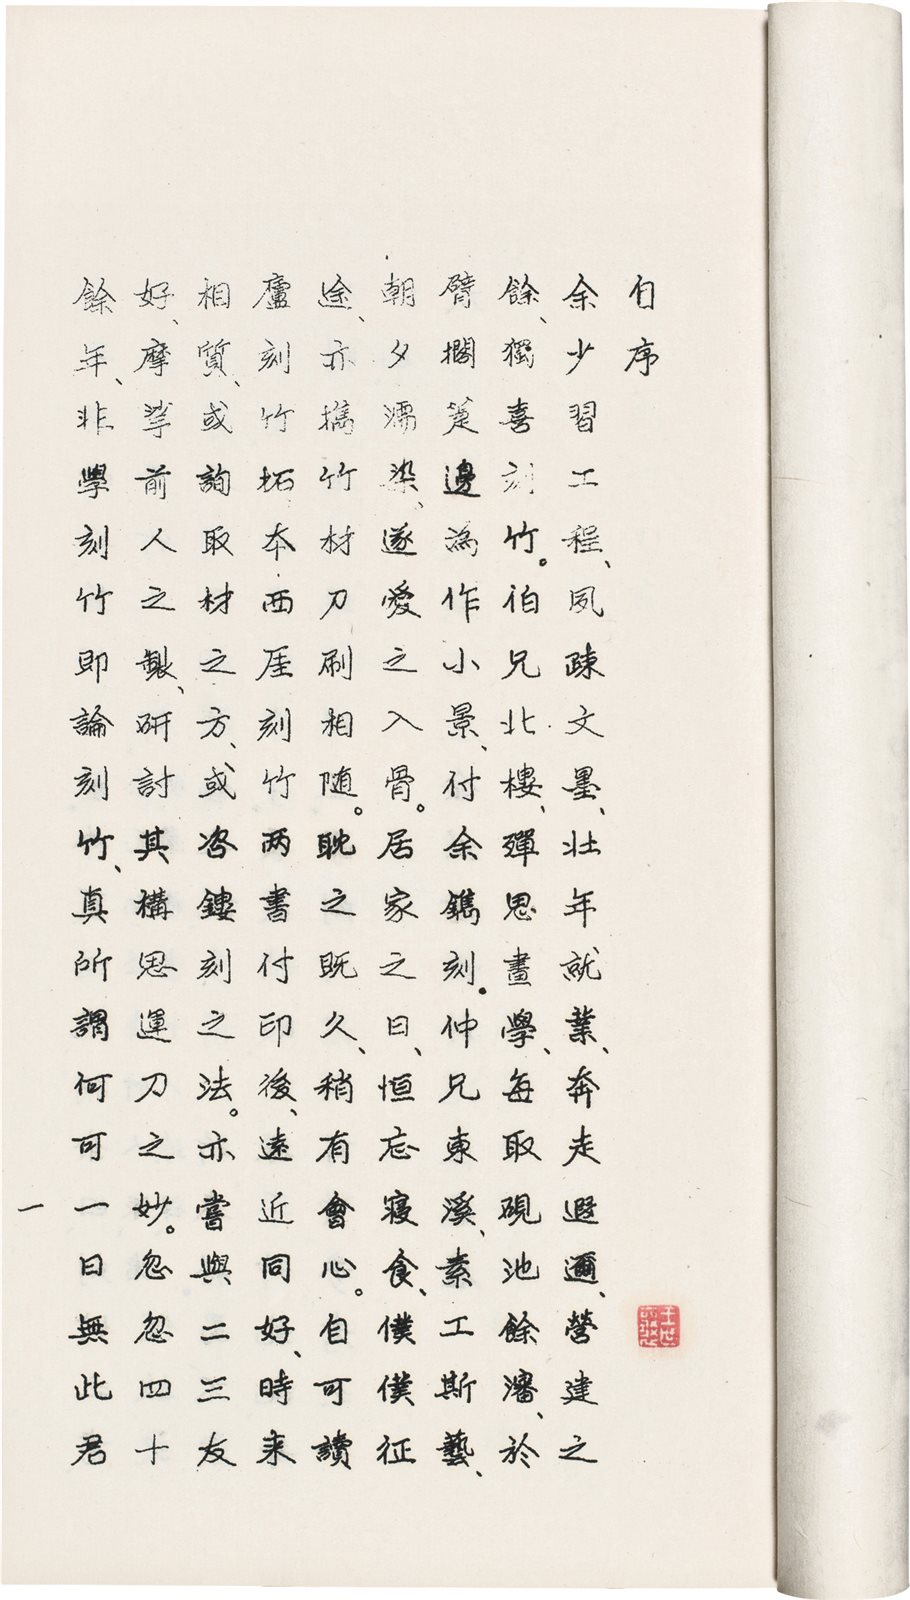 自序
余少習工程、夙疎文墨、壯年就業、奔走遐邇、營建之
餘、獨喜刻竹。伯兄北樓、殫思畫學、每取硯池餘瀋、於
臂擱箑邊為作小景、付余鐫刻。仲兄東溪、素工斯藝、
朝夕濡染、遂愛之入骨。居家之日、恒忘寢食、僕僕征
途、亦攜竹材刀刷相随。耽之既久、稍有會心。自可讀
廬刻竹拓本西厓刻竹两書付印後、遠近同好、時来
相質、或詢取材之方、或咨鏤刻之法。亦嘗與二三友
好、摩挲前人之製、研討其構思運刀之妙。忽忽四十
餘年、非學刻竹即論刻竹、真所謂何可一日無此君
一
王世襄